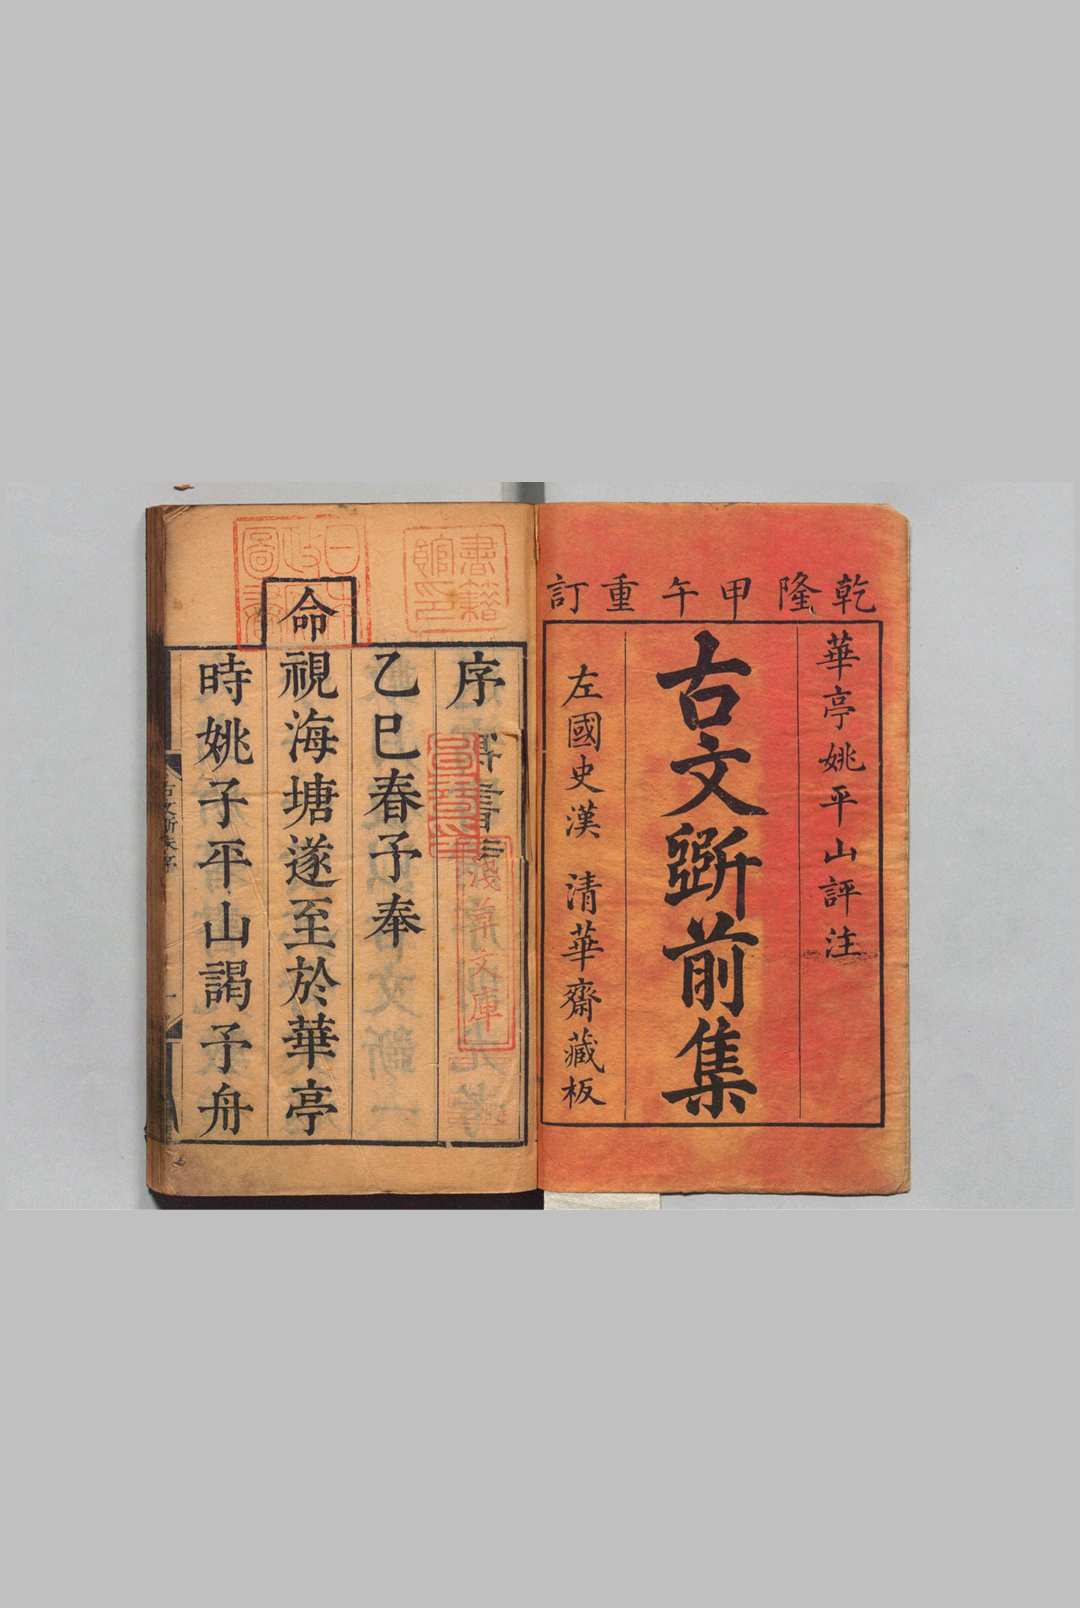 乾隆甲午重訂
華亭姚平山評注
古文斵前集
左國史漢 清華齋藏板
序
乙巳春予奉
命
視海塘遂至於華亭
時姚子平山謁予舟
書籍館印